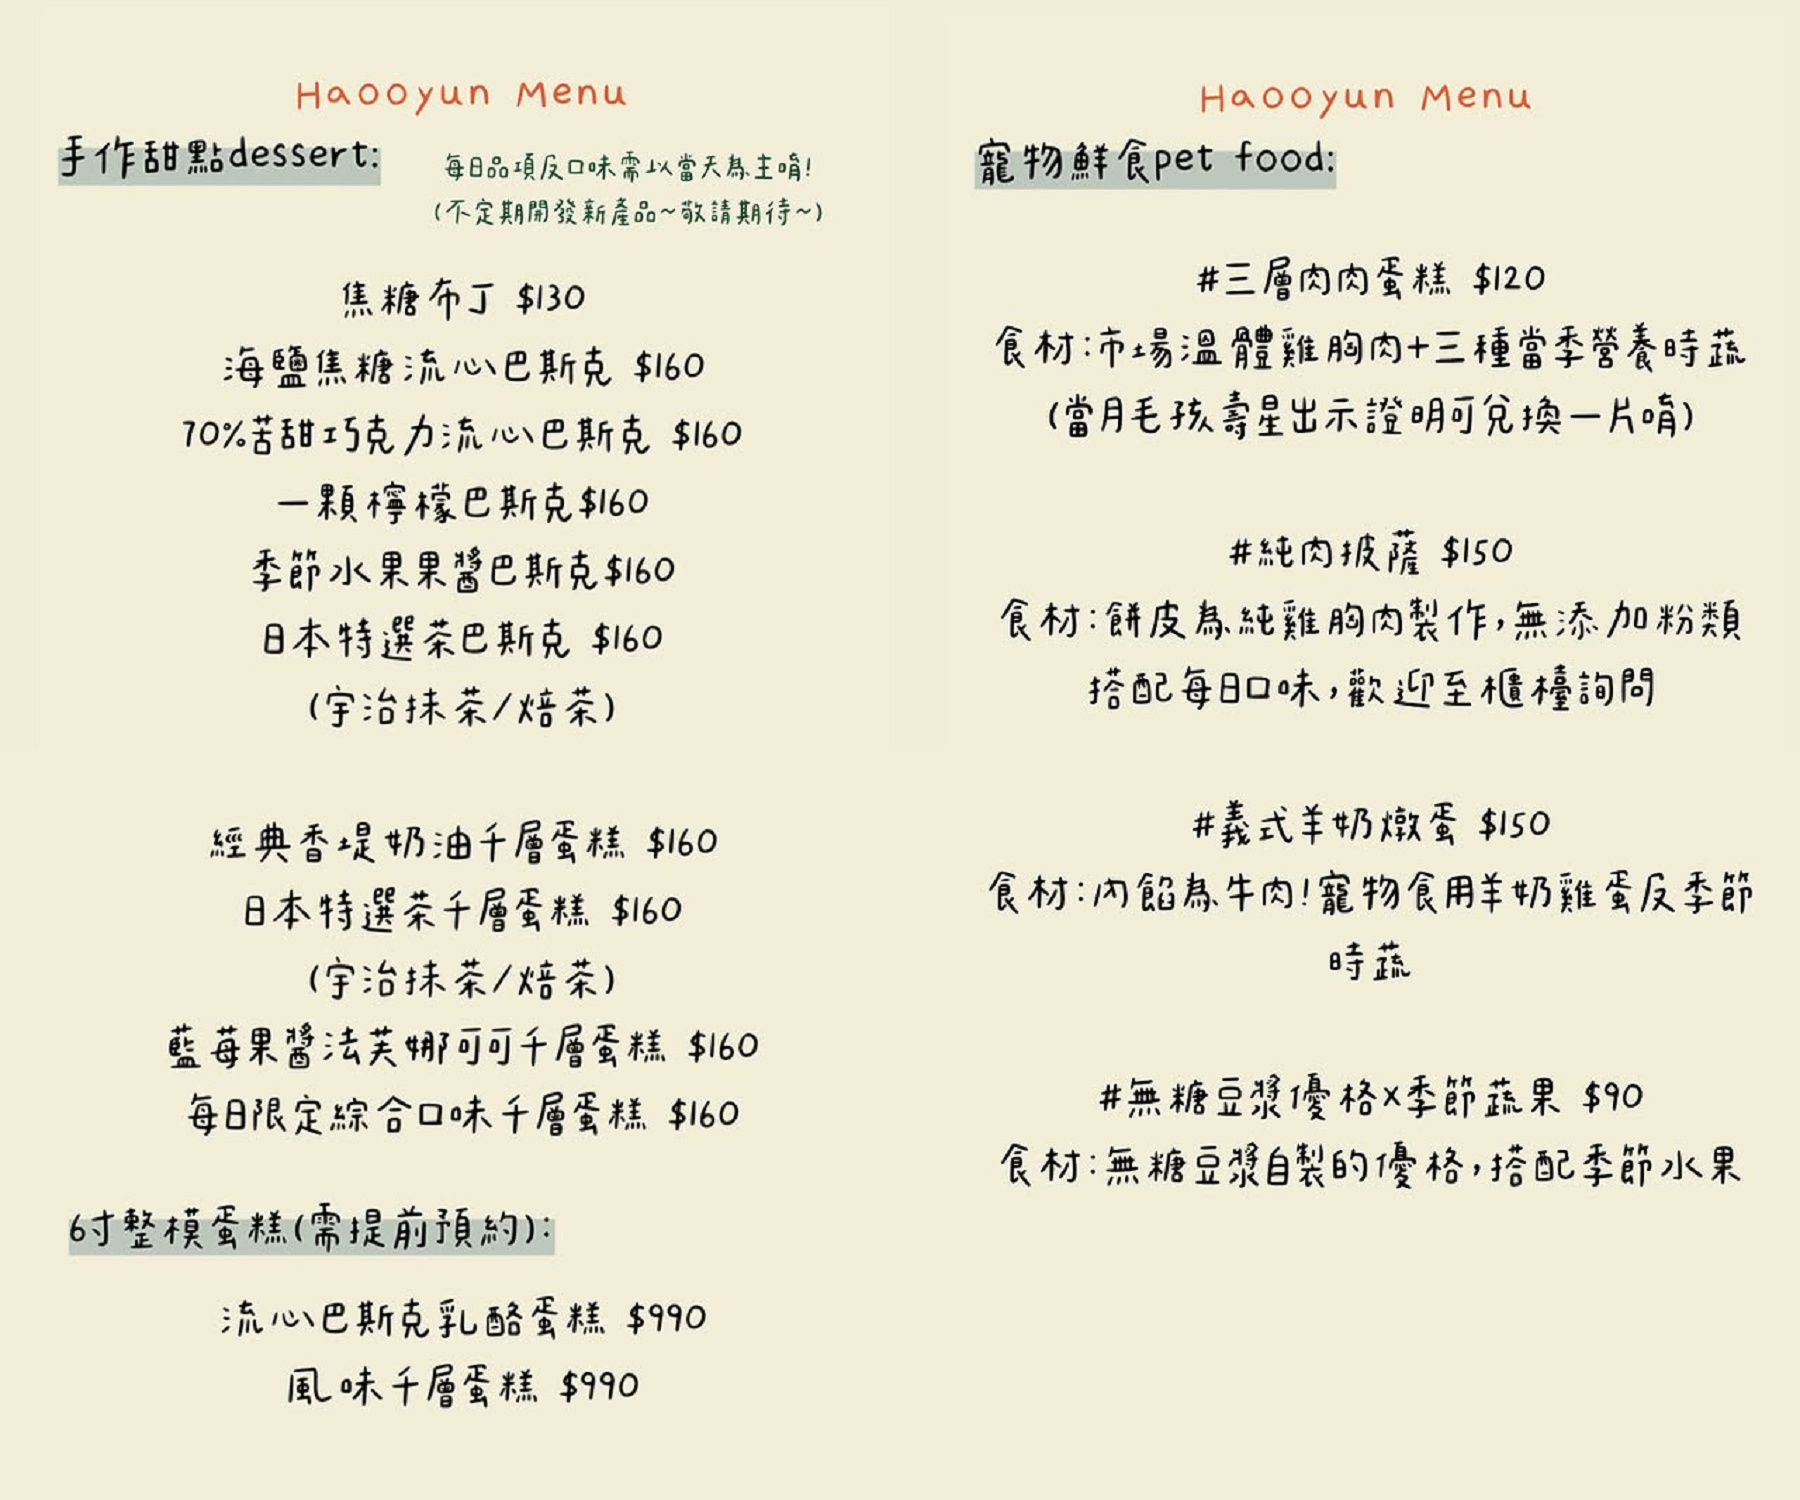 Haooyun Menu
手作甜點dessert:
每日品項及口味需以當天為主唷!
(不定期開發新產品~敬請期待~)
焦糖布丁 $130
海鹽焦糖流心巴斯克 $160
70%苦甜巧克力流心巴斯克 $160
一顆檸檬巴斯克$160
季節水果果醬巴斯克$160
日本特選茶巴斯克 $160
(宇治抹茶/焙茶)
經典香堤奶油千層蛋糕 $160
日本特選茶千層蛋糕 $160
(宇治抹茶/焙茶)
藍莓果醬法芙娜可可千層蛋糕 $160
每日限定綜合口味千層蛋糕 $160
6寸整模蛋糕(需提前預約):
流心巴斯克乳酪蛋糕 $990
風味千層蛋糕 $990
Haooyun Menu
寵物鮮食pet food:
#三層肉肉蛋糕 $120
食材:市場溫體雞胸肉+三種當季營養時蔬
(當月毛孩壽星出示證明可兌換一片唷)
#純肉披薩 $150
食材:餅皮為純雞胸肉製作,無添加粉類
搭配每日口味,歡迎至櫃檯詢問
#義式羊奶燉蛋 $150
食材:內餡為牛肉!寵物食用羊奶雞蛋及季節
時蔬
#無糖豆漿優格x季節蔬果 $90
食材:無糖豆漿自製的優格,搭配季節水果